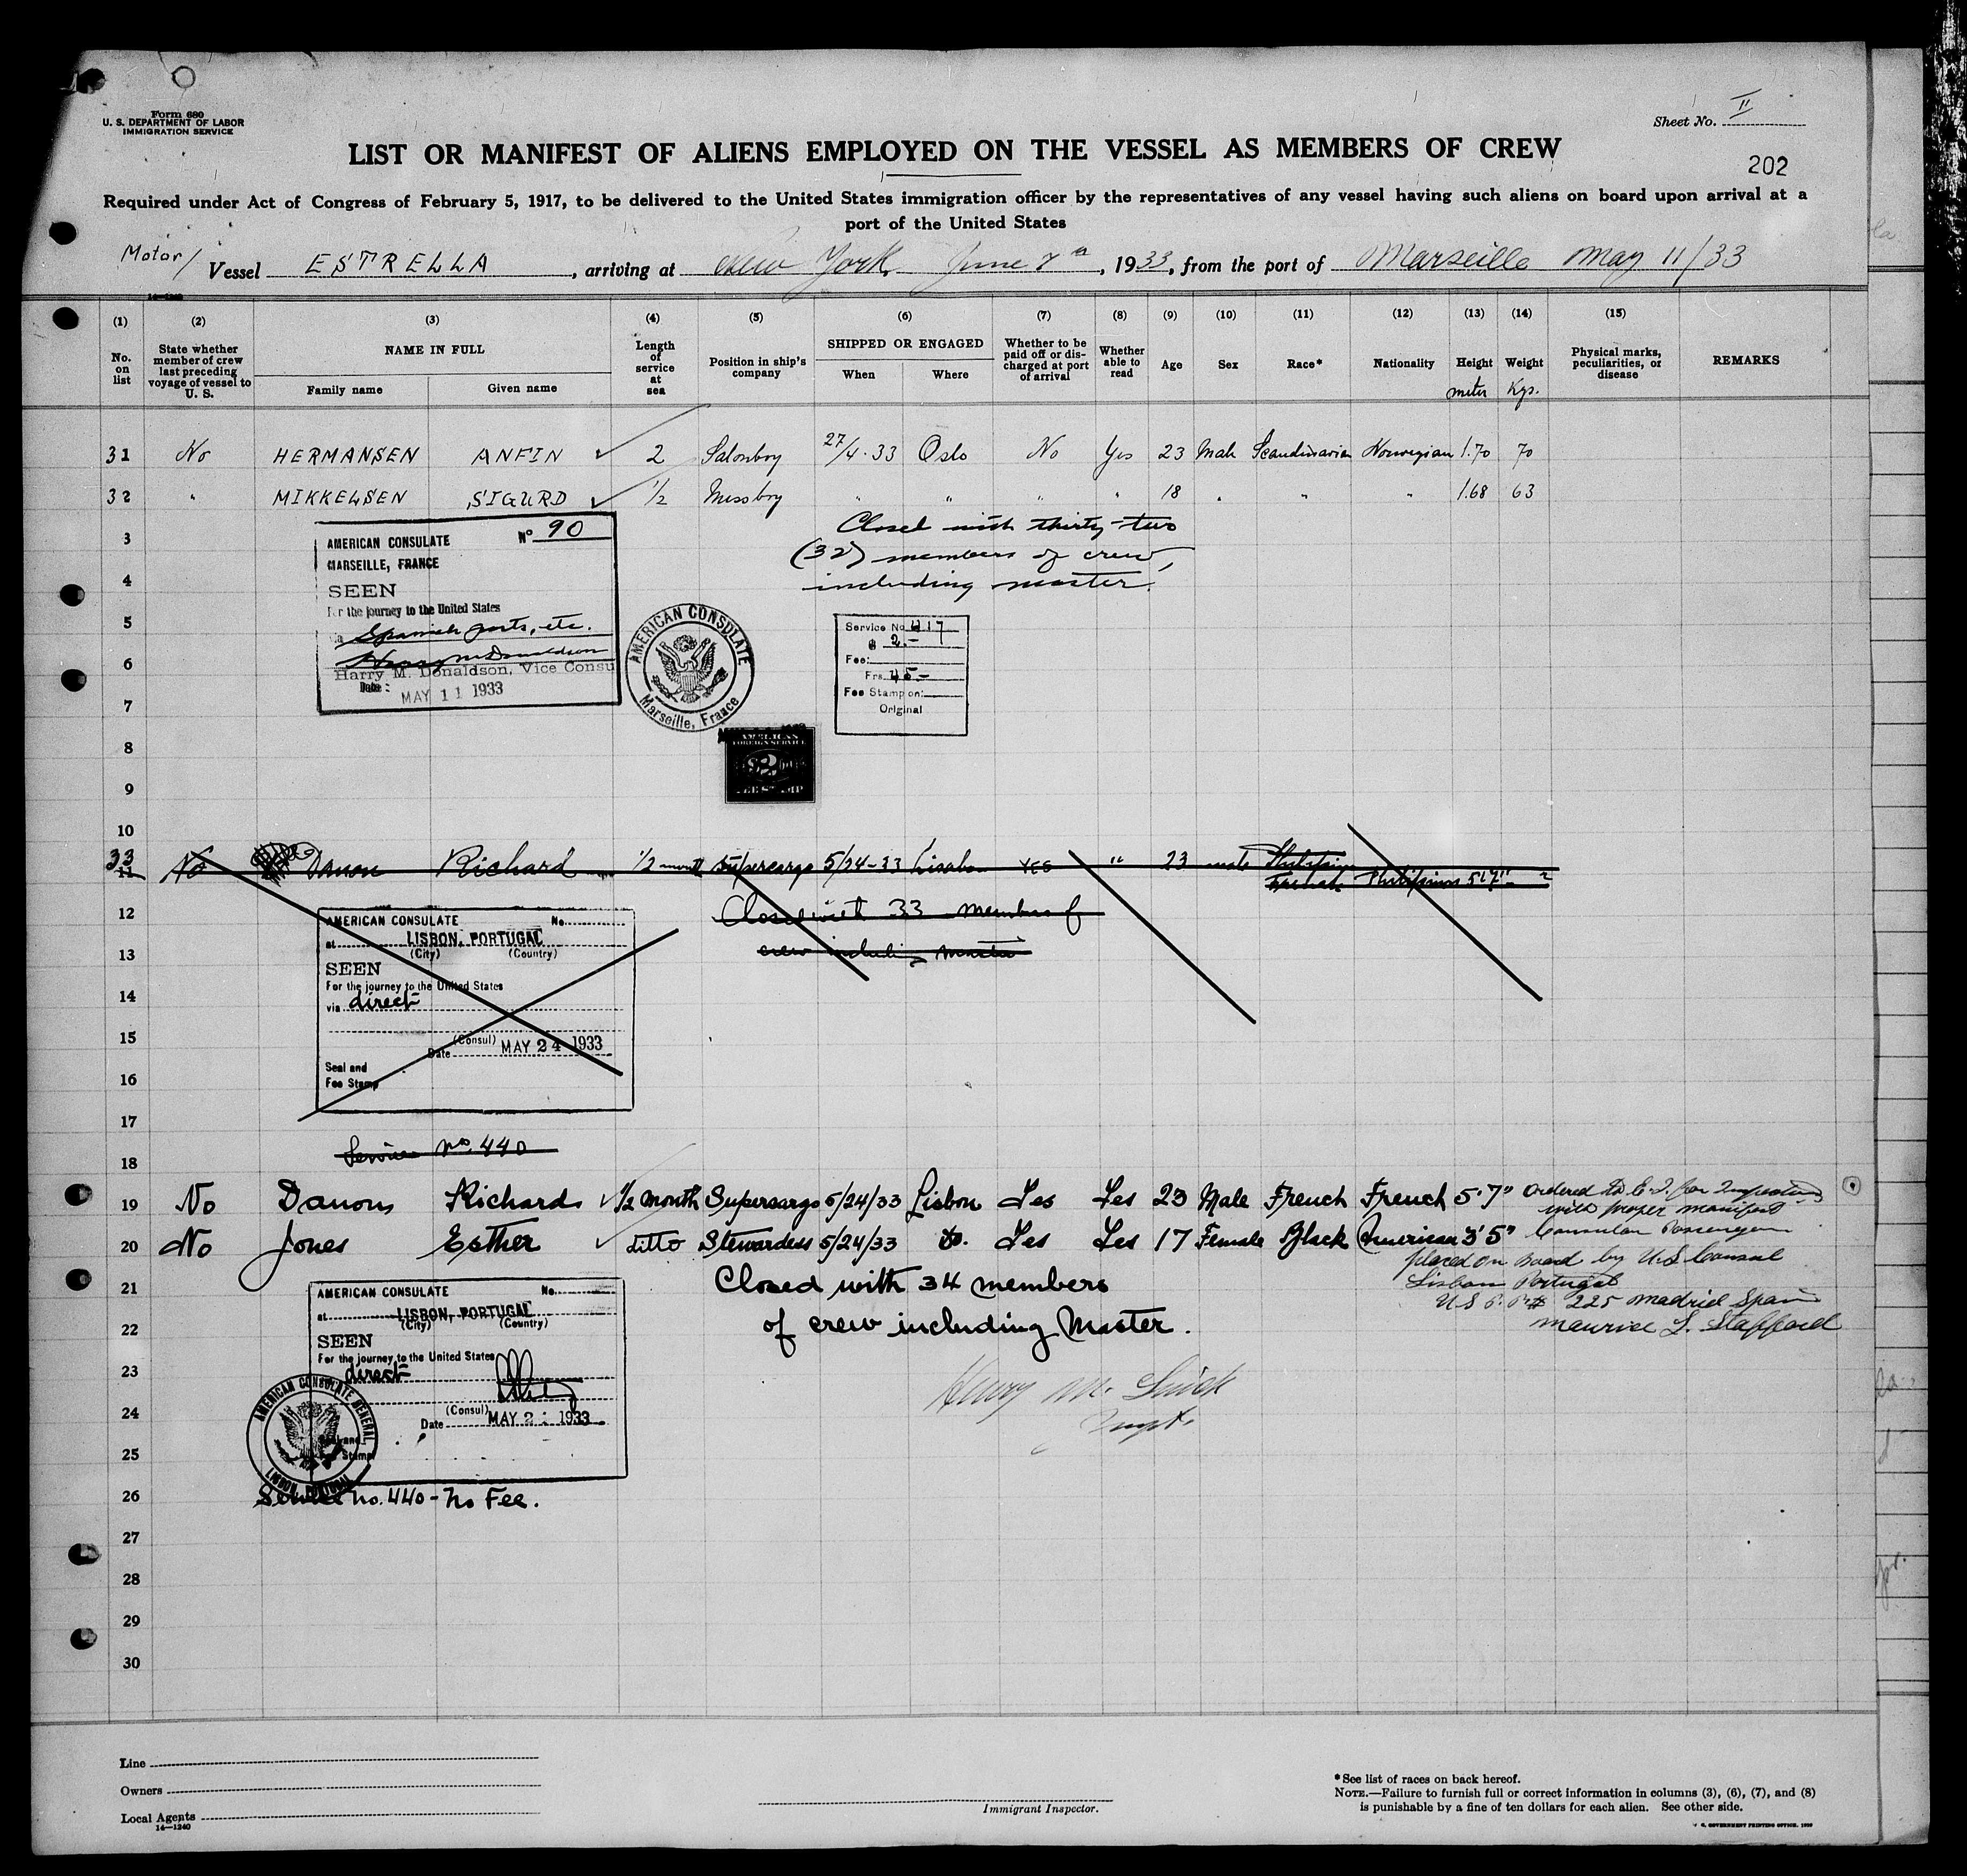 Form 680
U. S. DEPARTMENT OF LABOR
IMMIGRATION SERVICE
Sheet No. II
LIST OR MANIFEST OF ALIENS EMPLOYED ON THE VESSEL AS MEMBERS OF CREW
202
Required under Act of Congress of February 5, 1917, to be delivered to the United States immigration officer by the representatives of any vessel having such aliens on board upon arrival at a
port of the United States
Motor/ Vessel ESTRELLA, arriving at New York June 8th, 1933, from the port of Marseille May 11/33
14—1240
(1) (2) (3) (4) (5) (6) (7) (8) (9) (10) (11) (12) (13) (14) (15)
No. on list
State whether member of crew last preceding voyage of vessel to U. S.
NAME IN FULL
Family name Given name
Length of service at sea
Position in ship's company
SHIPPED OR ENGAGED
When Where
Whether to be paid off or discharged at port of arrival
Whether able to read
Age Sex Race* Nationality
Height meter
Weight Kgs.
Physical marks, peculiarities, or disease
REMARKS
31 No HERMANSEN ANFIN 2 Salonboy 27/4-33 Oslo No Yes 23 Male Scandinavian Norwegian 1.70 70
32 " MIKKELSEN SIGURD 1/2 Messboy " " " " 18 " " " 1.68 63
3
Closed with thirty-two
(32) members of crew,
including master.
AMERICAN CONSULATE No 90
MARSEILLE, FRANCE
SEEN
For the journey to the United States
Spanish ports, etc.
Harry M. Donaldson
Harry M. Donaldson, Vice Consu
Date: MAY 11 1933
4
5
6
7
AMERICAN CONSULATE
Marseille, France
Service No 417
$ 2.-
Fee:
Frs. 45.-
Fee Stamp on:
Original
AMERICAN
FOREIGN SERVICE
2
FEE STAMP
8
9
10
33 11 No Danon Richard 1/2 month supercargo 5/24-33 Lisabon YES " 23 male Philipsin
French Philipsinos 5'7" ?
12
Closed with 33 members of
13
crew including master
AMERICAN CONSULATE No.
at LISBON, PORTUGAL
(City) (Country)
SEEN
For the journey to the United States
via direct
14
15
(Consul)
Date MAY 24 1933
16
Seal and
Fee Stamp
17
Service No. 440
18
19 No Danon Richard 1/2 month Supercargo 5/24/33 Lisbon Yes Yes 23 Male French French 5'7" Ordered to E.I. for Inspection
with proper manifest
20 No Jones Esther ditto Stewardess 5/24/33 Do. Yes Yes 17 Female Black American 3'5" Consular Passenger
placed on board by U.S. Consul
Lisbon Portugal
U S P. P# 225 Madrid Spain
Maurice L. Stafford
21
Closed with 34 members
22
of crew including Master.
AMERICAN CONSULATE No.
at LISBON, PORTUGAL
(City) (Country)
SEEN
For the journey to the United States
direct
23
24
(Consul)
Date MAY 2 1933
AMERICAN CONSULATE GENERAL
LISBON, PORTUGAL
25
Henry M.
Inspt.
26
Service No. 440 - No Fee.
27
28
29
30
Line
Owners
Local Agents
14—1240
Immigrant Inspector.
*See list of races on back hereof.
NOTE.—Failure to furnish full or correct information in columns (3), (6), (7), and (8)
is punishable by a fine of ten dollars for each alien. See other side.
U. S. GOVERNMENT PRINTING OFFICE